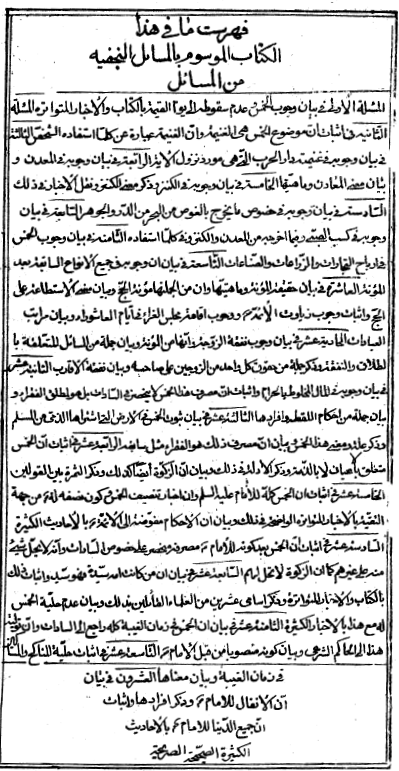 فهرست ما في هذا
الكتاب الموسوم بالمسائل النجفيه
من المسائل
المسئلة الاولى في بيان وجوب الخمس وعدم سقوطه الى يوم القيمة بالكتاب والاخبار المتواتره المسئلة
الثانيه في اثبات ان موضوع الخمس هي الغنيمة وان الغنيمة عبارة عن كلما استفاده الشخص الثالثة
في بيان وجوبه في غنيمة دار الحرب التى هى مورد نزول الاية الرابعة في بيان وجوبه في المعدن و
بيان معنى المعادن وما هيتها الخامسة في بيان وجوبه في الكنز وذكر معنى الكنز ونقل الاخبار في ذلك
السادسة في بيان وجوبه في خصوص ما يخرج بالغوص من البحر من الدر والجوهر السابعة في بيان
وجوبه في كسب الصبى وفيما اخرجه من المعدن والكنز وفى كلما استفاده الثامنة في بيان وجوب الخمس
في ارباح التجارات والزراعات والصناعات التاسعة في بيان ان وجوبه في جميع الانواع السابقة بعد
المؤنة العاشرة في بيان حقيقة المؤنة وماهيتها وان من الجملها مؤنة الحج وبيان معنى الاستطاعة على
الحج واثبات وجوب زيارت الائمة وجوب اقامة تعزية في ايام العاشوراء وبيان مراتب
العبادات الحادية عشر في بيان وجوب نفقة الزوجة وانها من المؤنة وبيان جملة من المسائل المتعلقة با
لطلاق والنفقة وذكر جملة من حقوق كل واحد من الزوجين على صاحبه وبيان نفقة الاقارب الثانية عشر
في بيان وجوبه في المال المخلوط بالحرام واثبات ان مصرف هذا الخمس لا ينحصر في السادات بل هو لمطلق الفقراء و
بيان جملة من احكام اللقطة وافرادها الثالثة عشر في بيان ثبوت الخمس في الارض التى اشتراها الذمى من المسلم
وذكر مصرف هذا الخمس وبيان ان مصرف ذلك هو الفقراء مثل سابقه الرابعة عشر في اثبات ان الخمس
متعلق بالاعيان لا بالذمة وذكر الادلة في ذلك وبيان ان الزكوة أيضا كذلك وذكر الثمرة بين القولين
الخامسة عشر في اثبات ان الخمس كله للامام عليه السلم وان اخبار تنصيف الخمس وكون نصفه له من جهة
التقية بالاخبار المتواترة الواضحة في ذلك وبيان ان الاحكام مفوضة الى الائمة بالأحاديث الكثيرة
السادسة عشر في اثبات أن الخمس بعد كونه للامام مصرفه منحصر على خصوص السادات وأنه لا يحل شيئ
منه على غيرهم كما ان الزكوة لا تحل لهم السابعة عشر في بيان ان من كانت امه سيدة فهو سيد واثبات ذلك
بالكتاب والاخبار المتواترة وذكر اسامى عشرين من العلماء القائلين بذلك وبيان عدم حلية الخمس
له مع هذا بالاخبار الكثيرة الثامنة عشر في بيان ان الخمس في زمان الغيبة كله راجع الى السادات وان
هذا الى الحاكم الشرعى وبيان كونه منصوبا من قبل الامام التاسعة عشر في اثبات حلية المناكح والمساكن
في زمان الغيبة وبيان معناها العشرون في بيان
أن الانفال للامام وذكر افرادها واثبات
ان جميع الدنيا للامام بالأحاديث
الكثيرة الصحيحة الصريحة